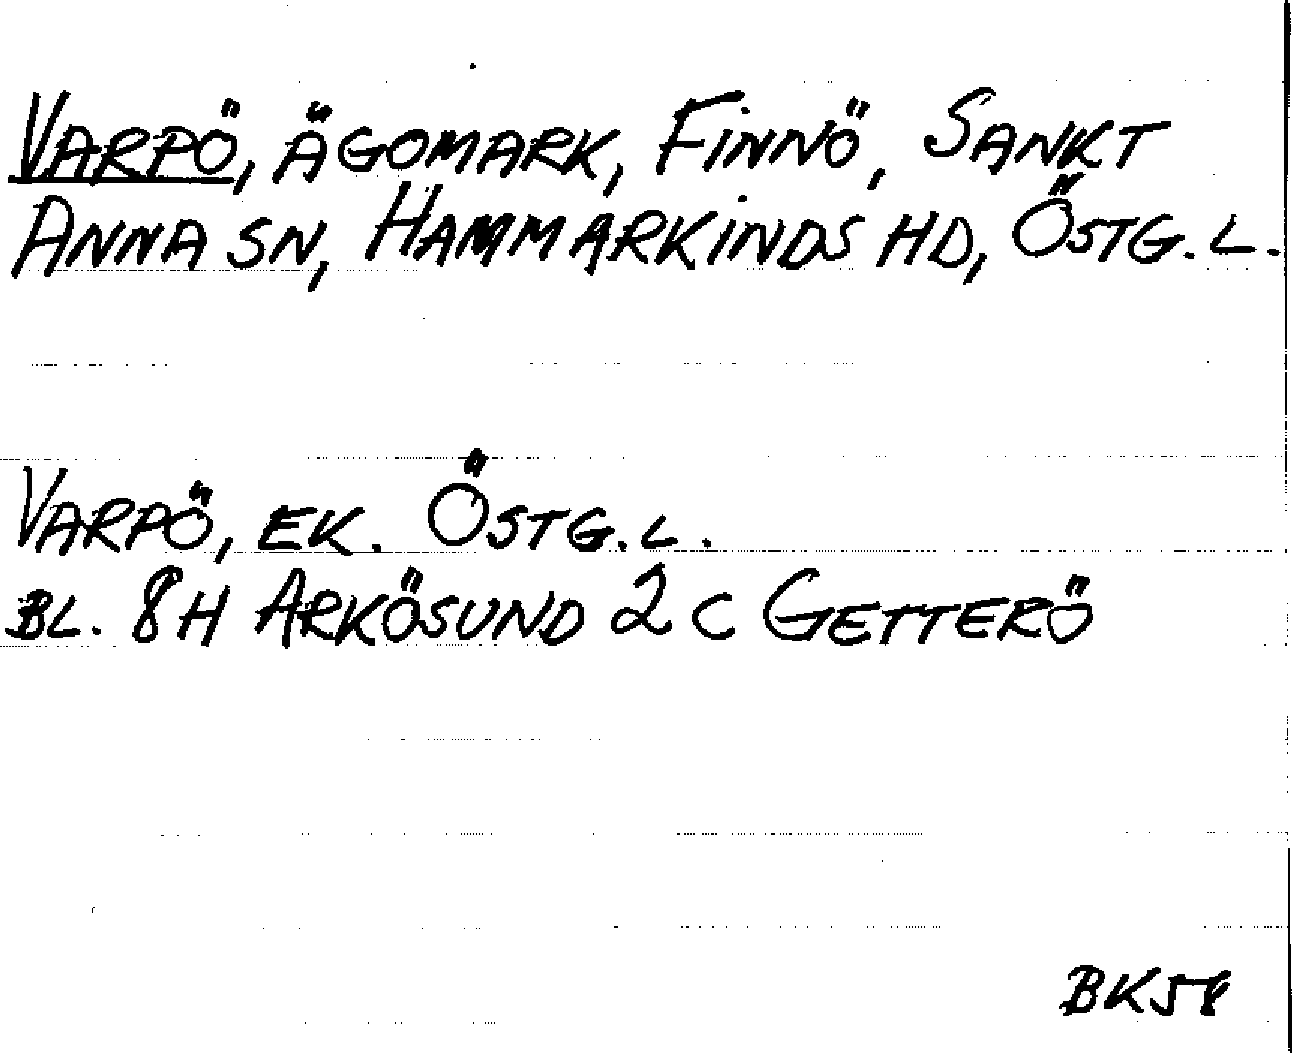 VARPÖ, ÄGOMARK, FINNÖ, SANKT
ANNA SN, HAMMARKINDS HD, ÖSTG. L.
VARPÖ, EK. ÖSTG. L.
BL. 8H ARKÖSUND 2 C GETTERÖ
BK58